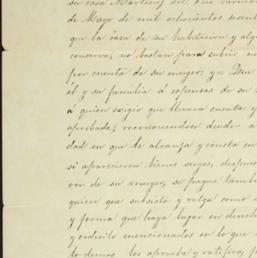 su casa Martinez del Rio
de Mayo de mil ochocientos
que la casa de su habitacion y
conserva, no bastan para cubrir
por cuenta de su muger; y que
él y su familia á espensas de su
á quien exigir que llevara cuenta y
aprobada; reconociendose deudor
dad en que le alcanza y consta en
si aparecieren bienes suyos, despues
ron de su muger, se pague tambien
quiere que subsista y valga como
y forma que haya lugar en derecho
y codicilo mencionados en lo que
lo demas los aprueba y ratifica,